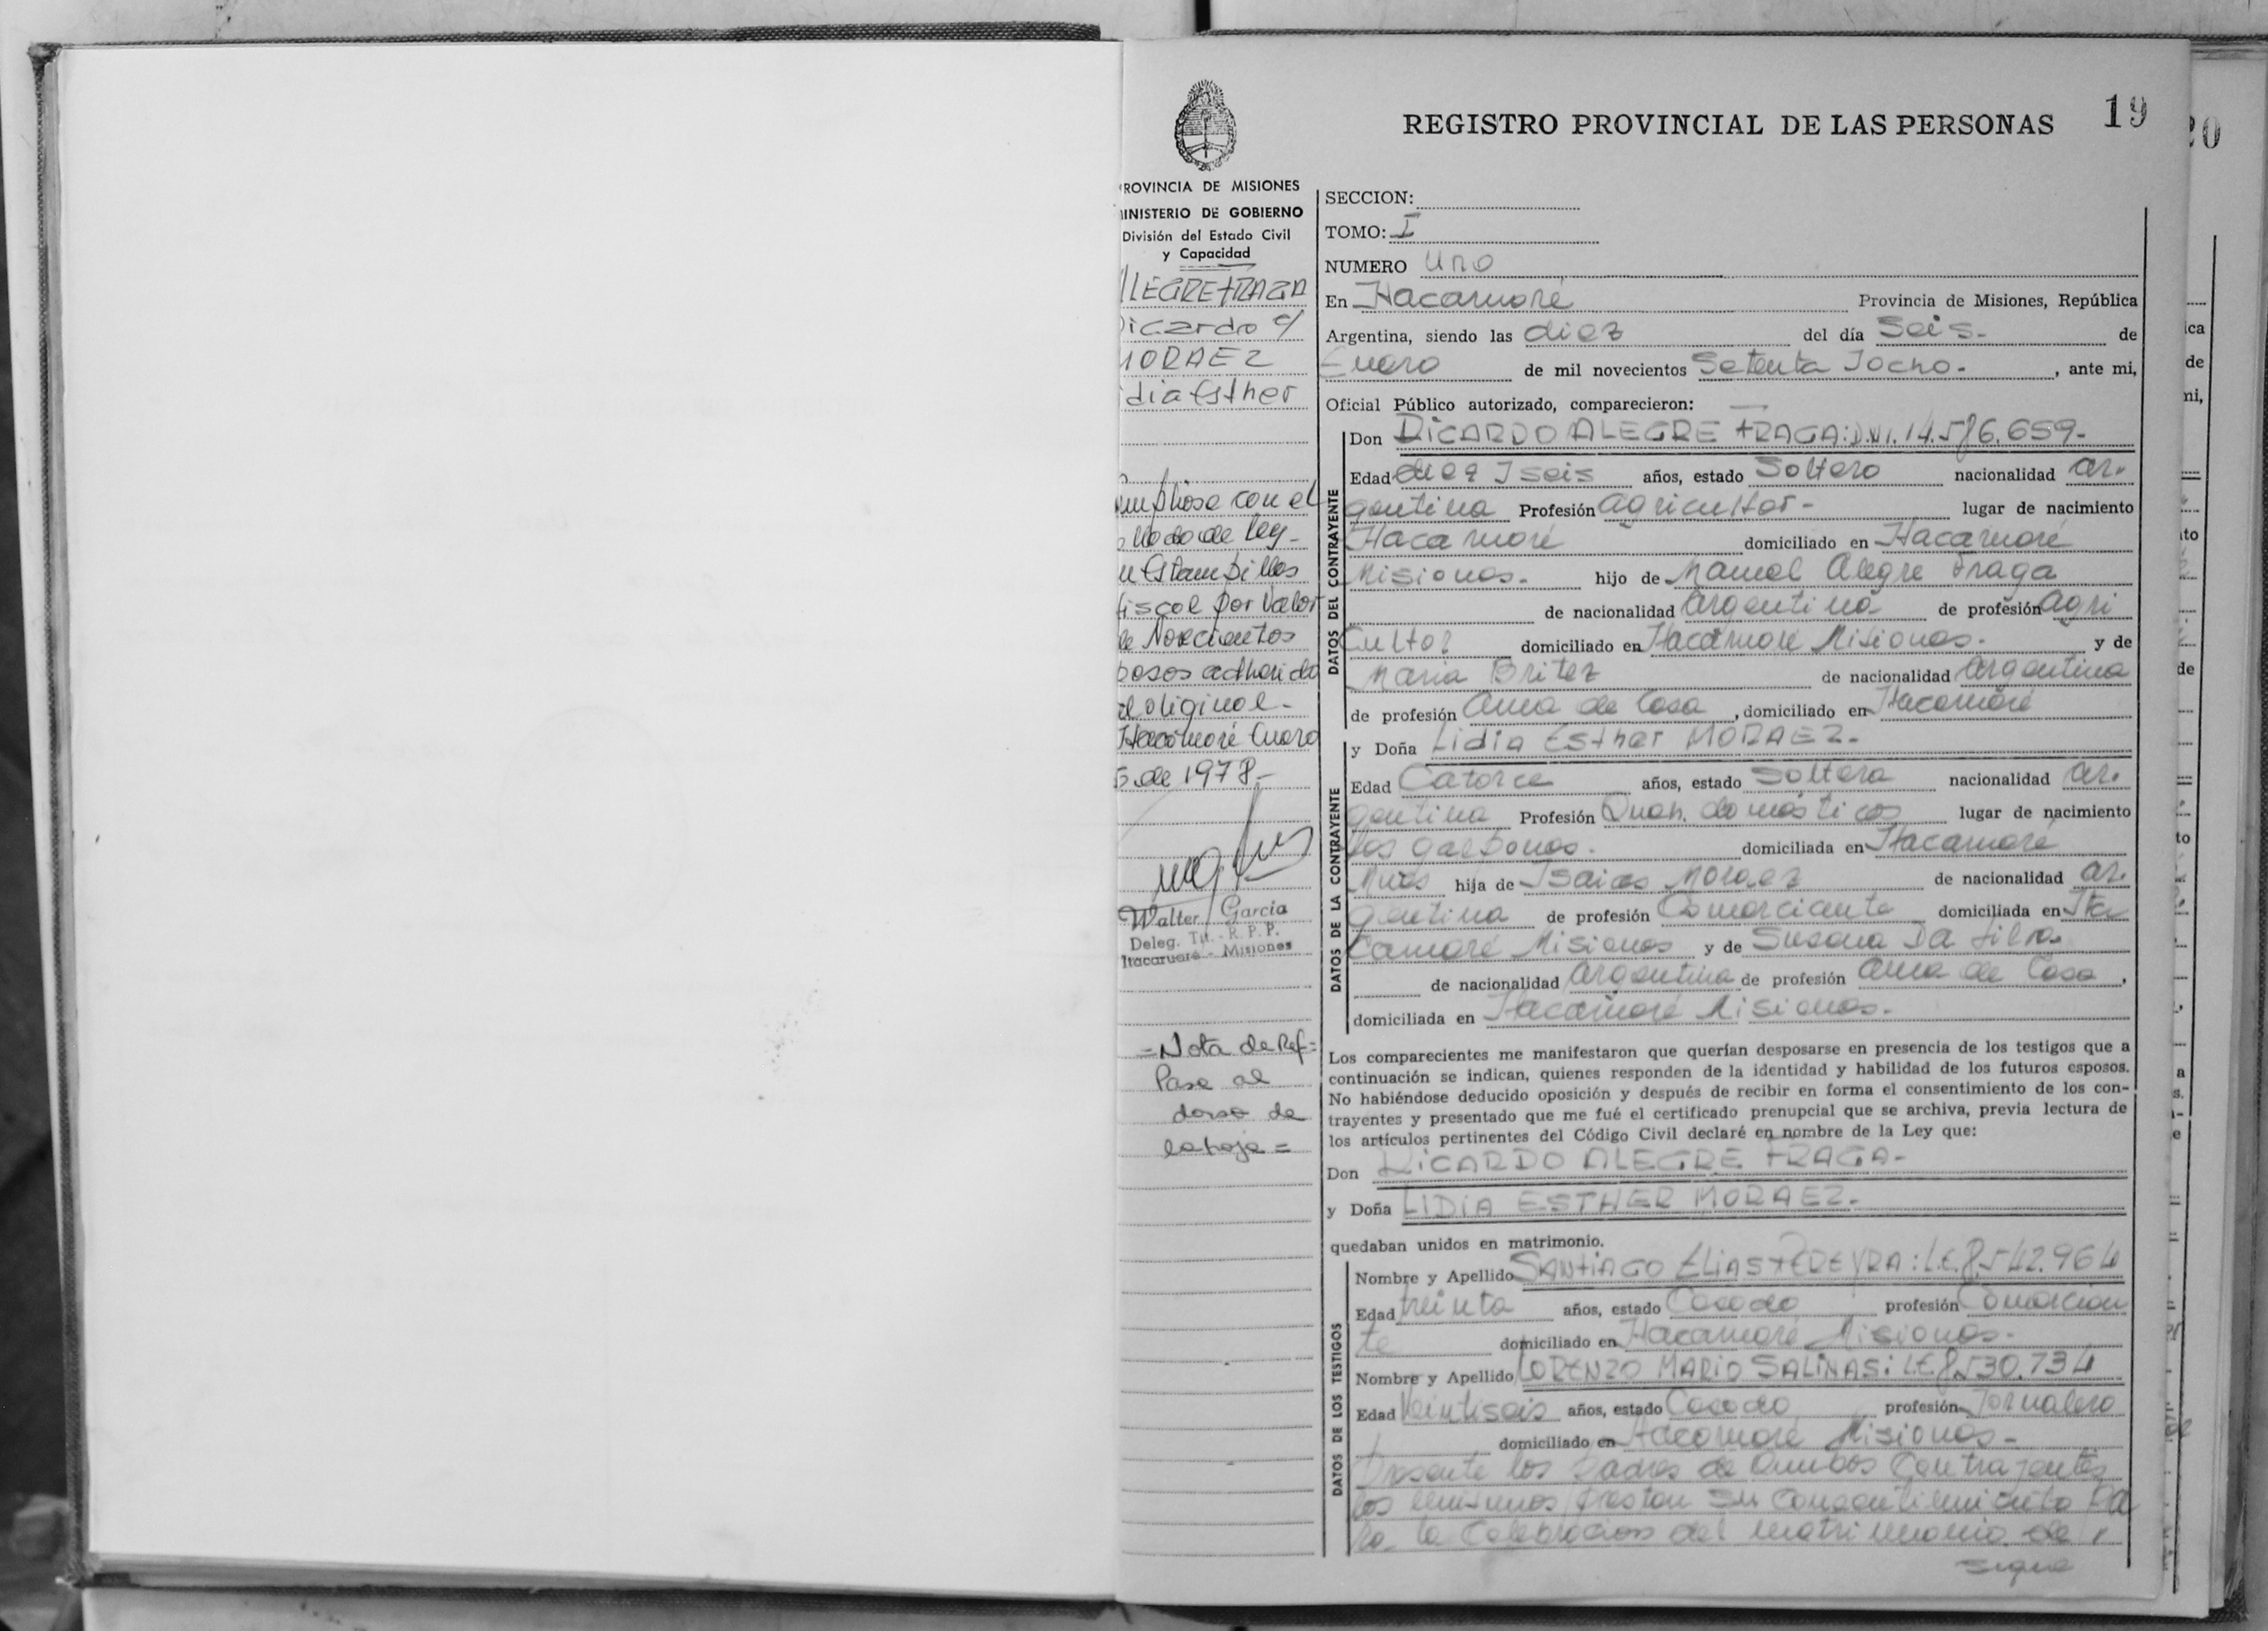 REGISTRO PROVINCIAL DE LAS PERSONAS 19
20
ROVINCIA DE MISIONES
INISTERIO DE GOBIERNO
División del Estado Civil
y Capacidad
LLEGRE FRAGA
icardo c/
MORAEZ
idia Esther
con el
de Ley-
Estampillas
fiscal por valor
de
pesos adherido
al original-
Itacaruaré Enero
5 de 1978-
Walter Garcia
Deleg. Tit. - R. P. P.
Itacaruaré - Misiones
= Nota de Ref =
Pase al
dorso de
la hoja =
SECCION:
TOMO: I
NUMERO Uno
En Itacaruaré Provincia de Misiones, República
Argentina, siendo las diez del día Seis- de
Enero de mil novecientos Setenta Iocho- , ante mi,
Oficial Público autorizado, comparecieron:
Don RICARDO ALEGRE FRAGA: D.N.I. 14.586.659-
Edad diez I seis años, estado Soltero nacionalidad ar-
gentina Profesión agricultor- lugar de nacimiento
Itacaruaré domiciliado en Itacaruaré
Misiones- hijo de Manuel Alegre Fraga
de nacionalidad argentina de profesión agri
cultor domiciliado en Itacaruaré Misiones- y de
Maria Britez de nacionalidad argentina
de profesión ama de Casa , domiciliado en Itacaruaré
y Doña Lidia Esther MORAEZ-
Edad Catorce años, estado Soltera nacionalidad ar-
gentina Profesión Queh. domésticos lugar de nacimiento
los galpones- domiciliada en Itacaruaré
Mnes hija de Isaias Moraez de nacionalidad ar-
gentina de profesión Comerciante domiciliada en Ita
caruaré Misiones y de Susana Da Silva-
de nacionalidad argentina de profesión ama de Casa ,
domiciliada en Itacaruaré Misiones-
Los comparecientes me manifestaron que querían desposarse en presencia de los testigos que a
continuación se indican, quienes responden de la identidad y habilidad de los futuros esposos.
No habiéndose deducido oposición y después de recibir en forma el consentimiento de los con-
trayentes y presentado que me fué el certificado prenupcial que se archiva, previa lectura de
los artículos pertinentes del Código Civil declaré en nombre de la Ley que:
Don RICARDO ALEGRE FRAGA-
y Doña LIDIA ESTHER MORAEZ-
quedaban unidos en matrimonio.
Nombre y Apellido SANTIAGO ELIAS FEREYRA: L.E. 8.542.964
Edad treinta años, estado Casado profesión Comercian
te domiciliado en Itacaruaré Misiones-
Nombre y Apellido LORENZO MARIO SALINAS: L.E. 8.530.734
Edad Veintiseis años, estado Casado profesión Jornalero
domiciliado en Itacaruaré Misiones-
Presente los Padres de Ambos Contrayentes
los mismos Prestan su consentimiento Pa
ra la Celebracion del matrimonio de
sigue
DATOS DEL CONTRAYENTE
DATOS DE LA CONTRAYENTE
DATOS DE LOS TESTIGOS